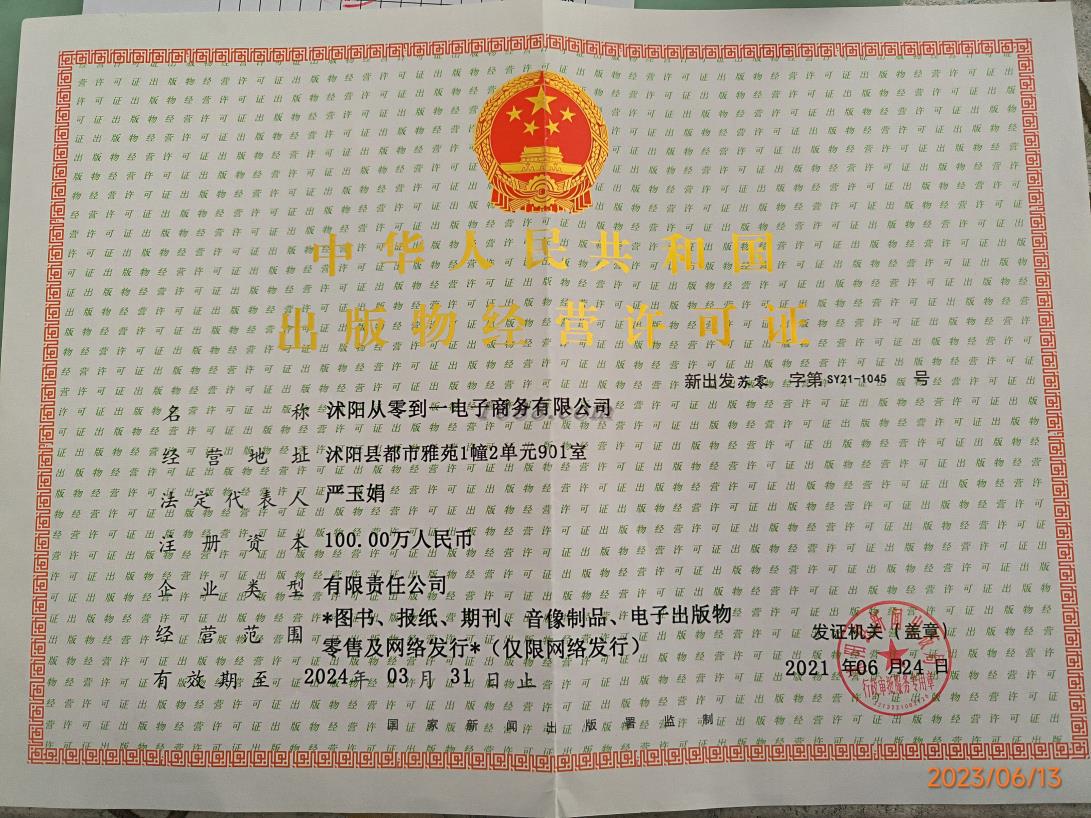 中华人民共和国
出版物经营许可证
新出发苏零 字第SY21-1045 号
名 称 沭阳从零到一电子商务有限公司
经 营 地 址 沭阳县都市雅苑1幢2单元901室
法 定 代 表 人 严玉娟
注 册 资 本 100.00万人民币
企 业 类 型 有限责任公司
经 营 范 围 *图书、报纸、期刊、音像制品、电子出版物
零售及网络发行*（仅限网络发行）
发证机关（盖章）
2021 年06 月24 日
行政审批服务专用章
有 效 期 至 2024年 03 月 31 日 止
国 家 新 闻 出 版 署 监 制
2023/06/13